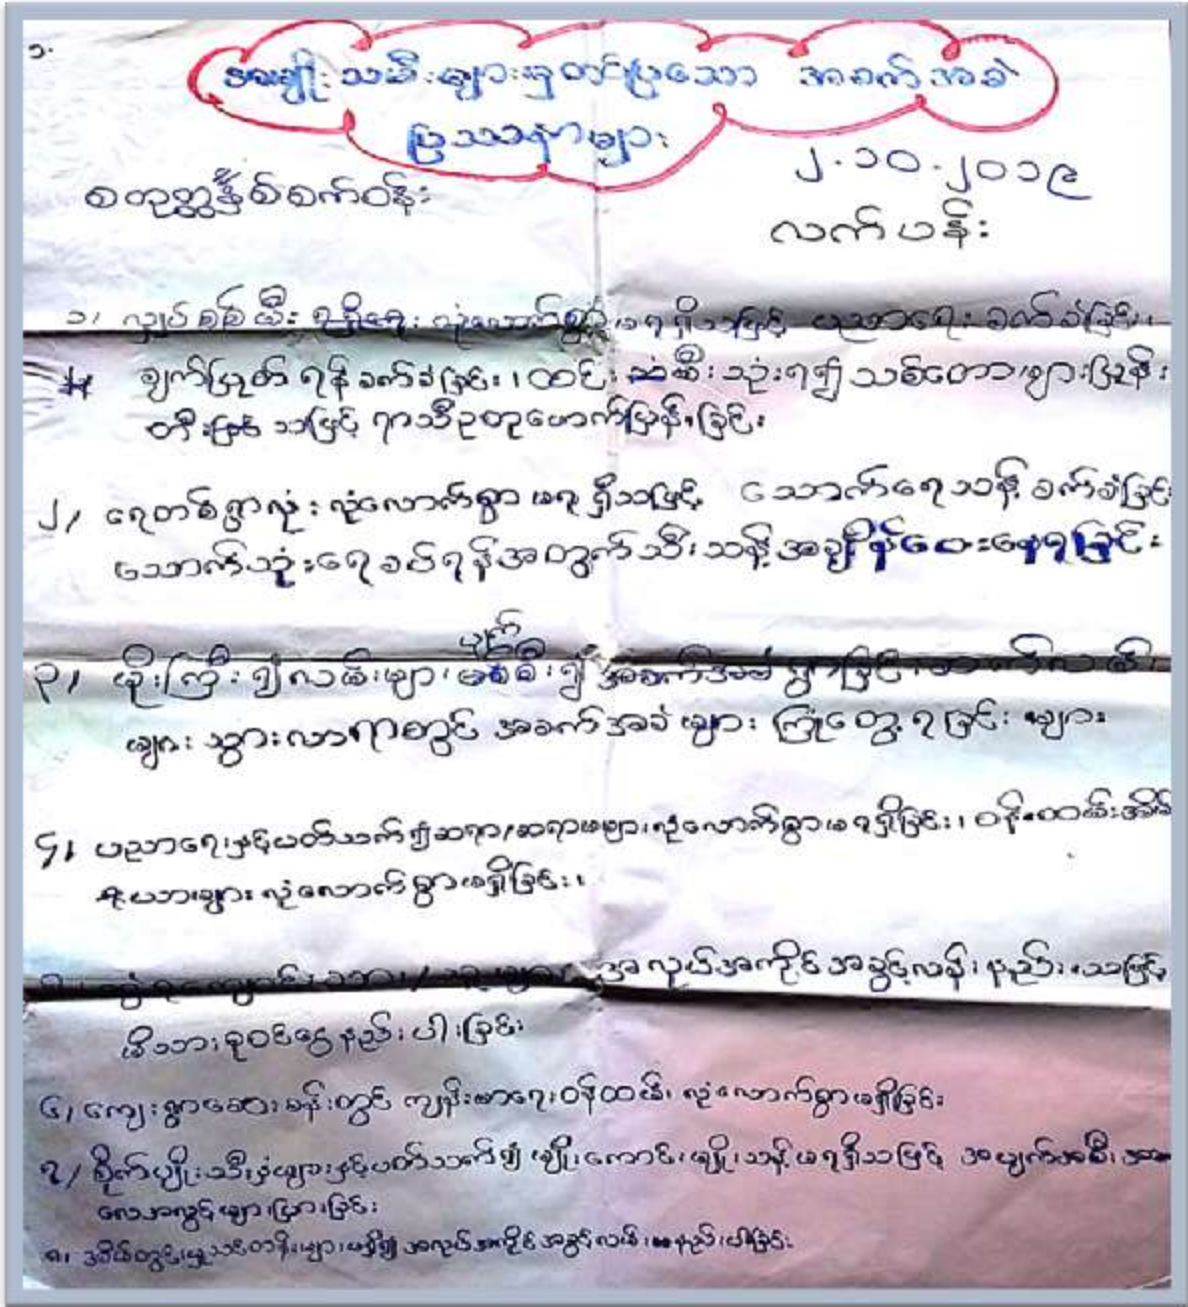 ၁.
အမျိုးသမီးများမှတင်ပြသော အခက်အခဲ
ပြဿနာများ
၂.၁၀.၂၀၁၉
စတုတ္ထနှစ်စက်ဝန်း
လက်ပန်း
၁၊ လျှပ်စစ်မီး ရရှိရေး လုံလောက်စွာ မရရှိသဖြင့် ပညာရေး ခက်ခဲခြင်း၊
ချက်ပြုတ်ရန် ခက်ခဲခြင်း၊ ထင်းမီးသုံးရ၍ သစ်တောများပြုန်း
တီးသဖြင့် ရာသီဥတုဖောက်ပြန်ခြင်း
၂၊ ရေတစ်ရွာလုံး လုံလောက်စွာ မရရှိသဖြင့် သောက်ရေသန့် ခက်ခဲခြင်း
သောက်သုံးရေခပ်ရန်အတွက် သီးသန့်အချိန်ပေးနေရခြင်း
၃၊ မိုးကြီး၍လမ်းများပျက်စီး၍ အခက်အခဲ
များ သွားလာရာတွင် အခက်အခဲများ ကြုံတွေ့ရခြင်းများ
၄၊ ပညာရေးနှင့်ပတ်သက်၍ဆရာ/ဆရာမများလုံလောက်စွာမရရှိခြင်း၊ ဝန်ထမ်းအိမ်
ရာများ လုံလောက်စွာမရှိခြင်း၊
အလုပ်အကိုင်အခွင့်လမ်းနည်းသဖြင့်
မိသားစုဝင်ငွေနည်းပါးခြင်း
၆၊ ကျေးရွာဆေးခန်းတွင် ကျန်းမာရေးဝန်ထမ်း လုံလောက်စွာမရှိခြင်း
၇၊ စိုက်ပျိုးသီးနှံများနှင့်ပတ်သက်၍ မျိုးကောင်းမျိုးသန့်မရရှိသဖြင့် အပျက်အစီး
လေအလွင့်များပြားခြင်း
၈၊ အိမ်တွင်းမှုသင်တန်းများမရှိ၍ အလုပ်အကိုင်အခွင့်လမ်းနည်းပါးခြင်း